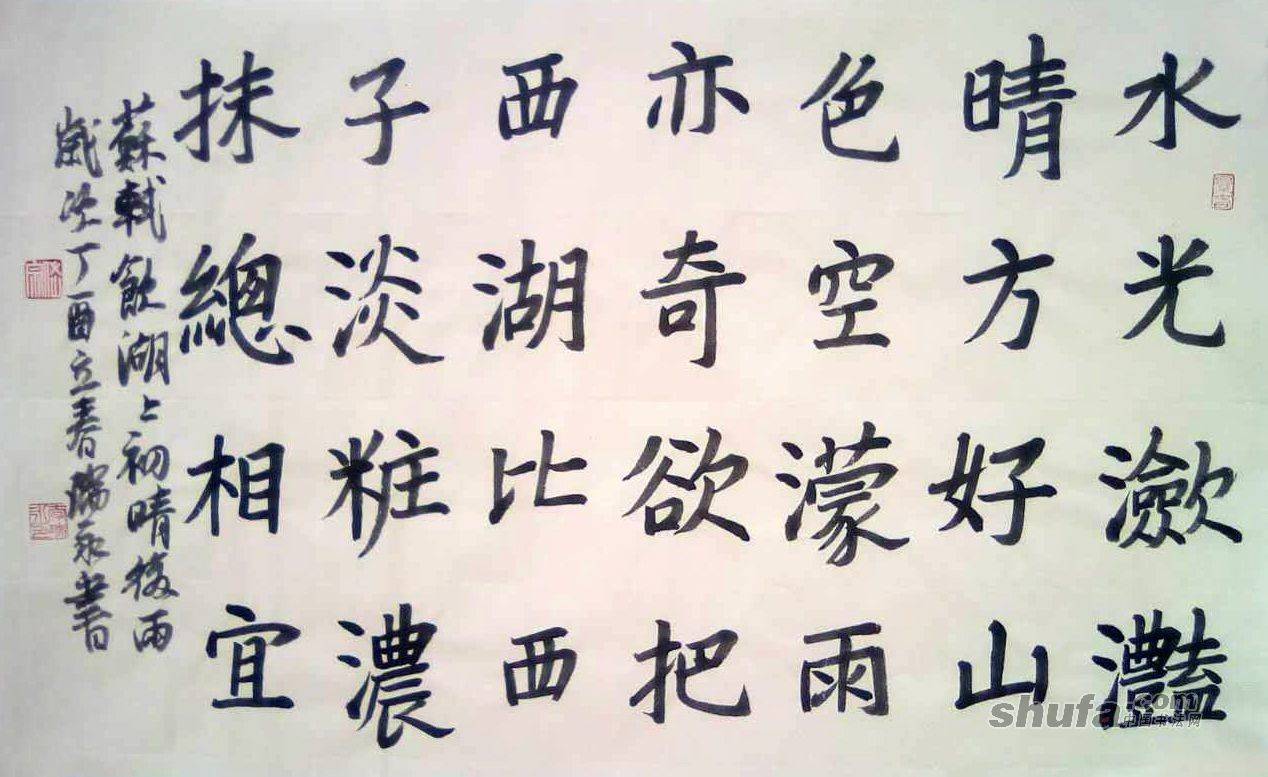 水光瀲灎
晴方好山
色空濛雨
亦奇欲把
西湖比西
子淡粧濃
抹總相宜
蘇軾飲湖上初晴後雨
歲次丁酉立春瑞永書
shufa.com
中国书法网